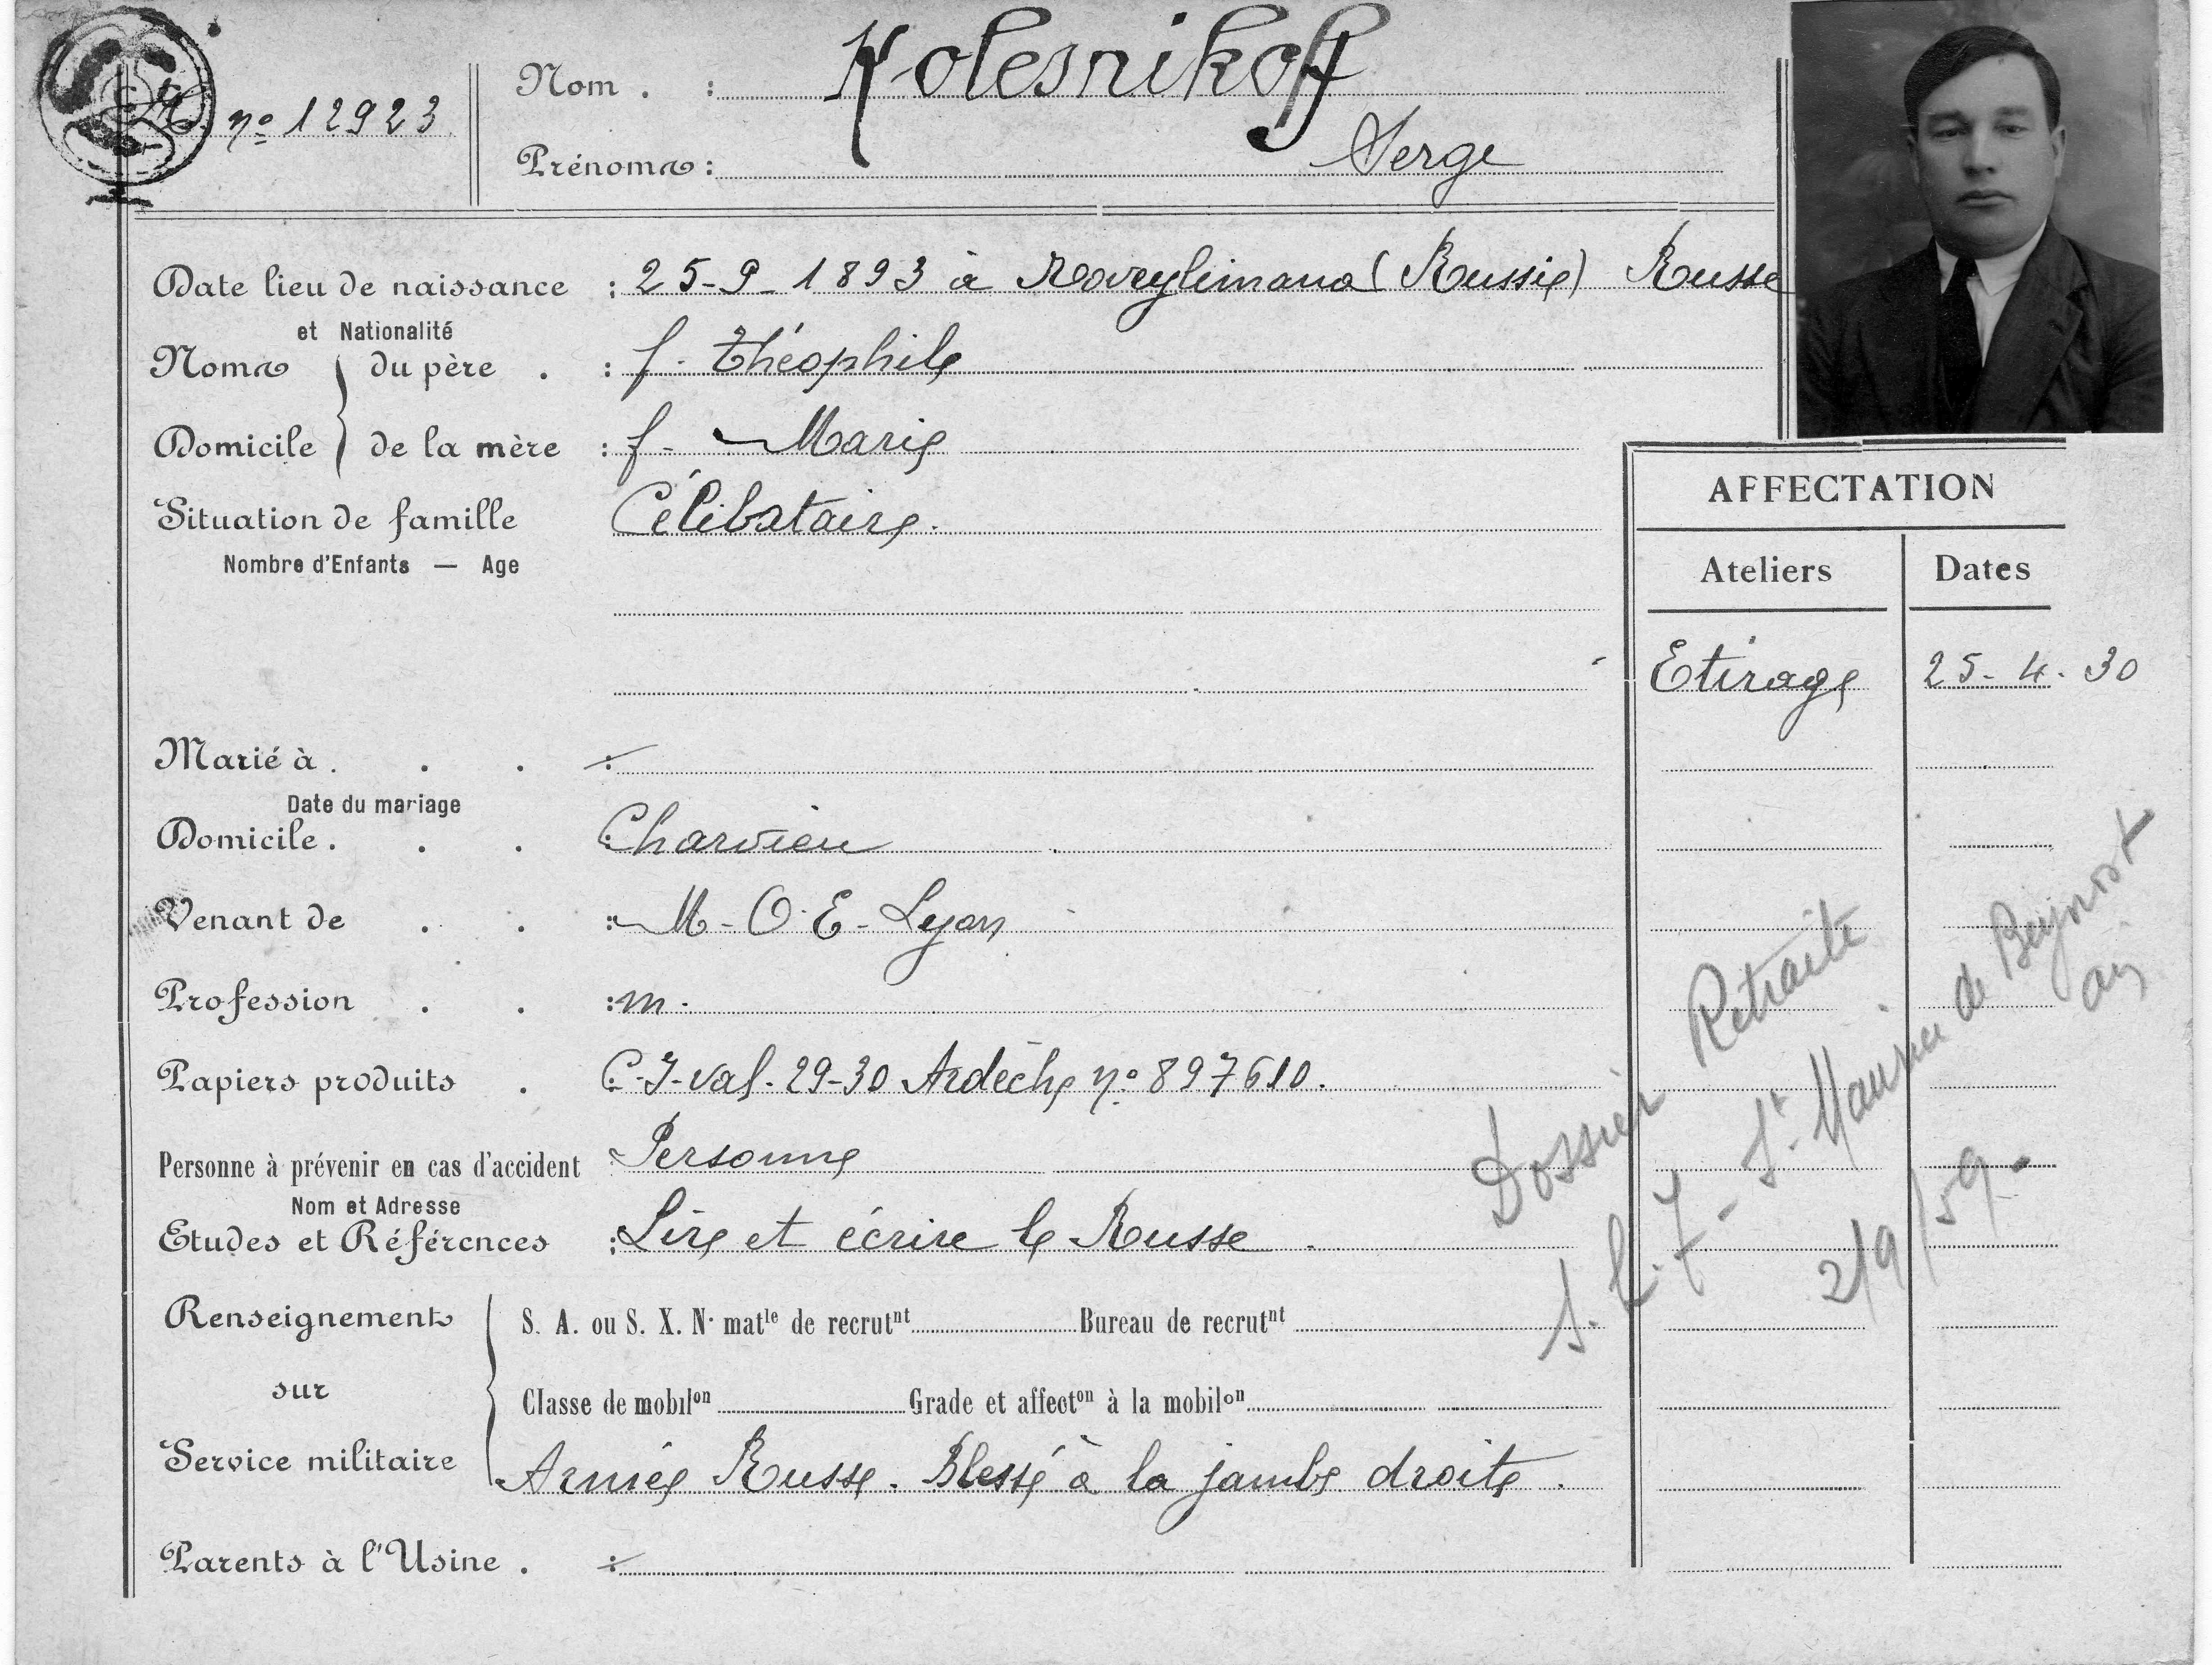 n° 12923
Nom . : Kolesnikoff
Prénoms : Serge
Date lieu de naissance : 25-9-1893 à (Russie) Russe
et Nationalité
Noms du père . : f. Théophile
Domicile de la mère : f- Marie
Situation de famille Célibataire.
Nombre d'Enfants — Age
AFFECTATION
Ateliers Dates
Etirage 25-4-30
Marié à . . . :
Date du mariage
Domicile . . . : Charvieu
Venant de . . : M-O-E-Lyon
Profession . . : m.
Papiers produits . : C-I-val-29-30 Ardèche n° 897610.
Personne à prévenir en cas d'accident : Personne
Nom et Adresse
Etudes et Références : Lire et écrire le Russe
Renseignements
sur
Service militaire
S. A. ou S. X. N· matle de recrutnt Bureau de recrutnt
Classe de mobilon Grade et affecton à la mobilon
Armée Russe. Blessé à la jambe droite.
Parents à l'Usine . :
Dossier Retraite
St Maurice de Beynost
Ain
2/9/59-